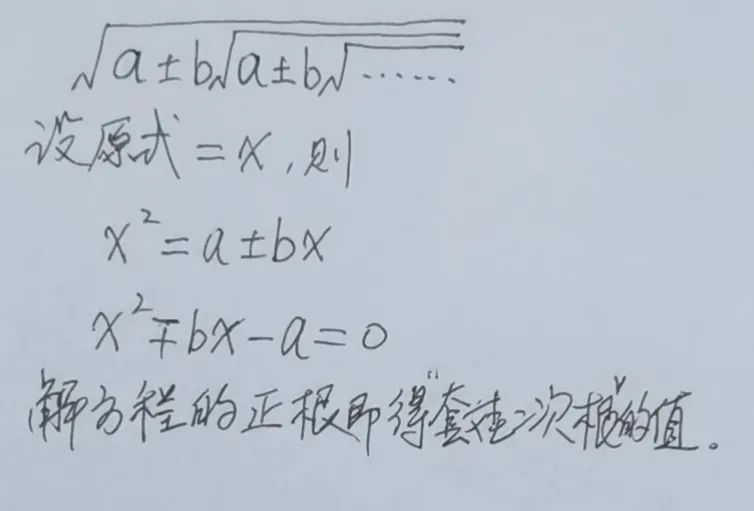 √(a±b√(a±b√(……
设原式=x,则
x²=a±bx
x²∓bx-a=0
解方程的正根即得"套娃二次根"的值。